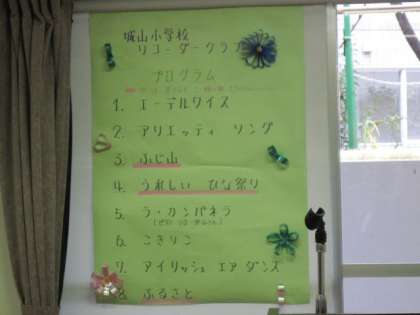 城山小学校
リコーダークラブ
プログラム
1. エーデルワイス
2. アリエッティ ソング
3. ふじ山
4. うれしい ひな祭り
5. ラ・カンパネラ
6. こきりこ
7. アイリッシュ エア ダンス
8. ふるさと